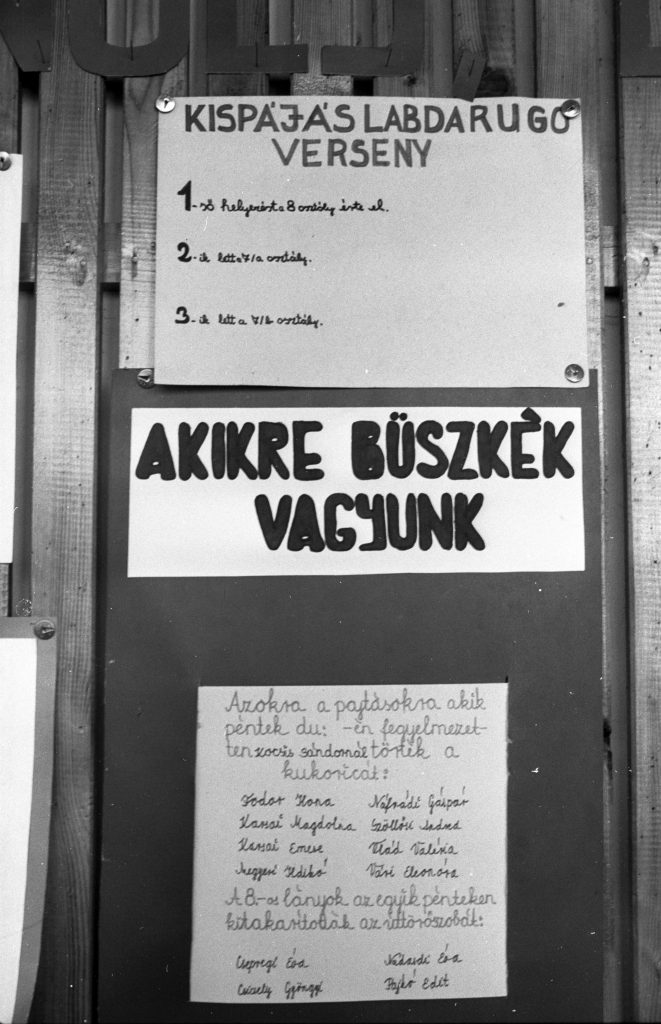 KISPÁJÁS LABDARUGÓ
VERSENY
1-ső helyezést a 8 osztály érte el.
2-ik lett a 7/a osztály.
3-ik lett a 7/b osztály.
AKIKRE BÜSZKÉK
VAGYUNK
Azokra a pajtásokra akik
péntek du: -én fegyelmezet-
ten Kocsis Sándornál törték a
kukoricát:
Fodor Ilona Náfrádi Gáspár
Karsai Magdolna Szöllősi Andrea
Karsai Emese Vlád Valéria
Megyesi Ildikó Vári Eleonóra
A 8.-os lányok az egyik pénteken
kitakarították az úttörőszobát:
Csepregi Éva Nádasdi Éva
Csiszely Gyöngyi Pajkó Edit